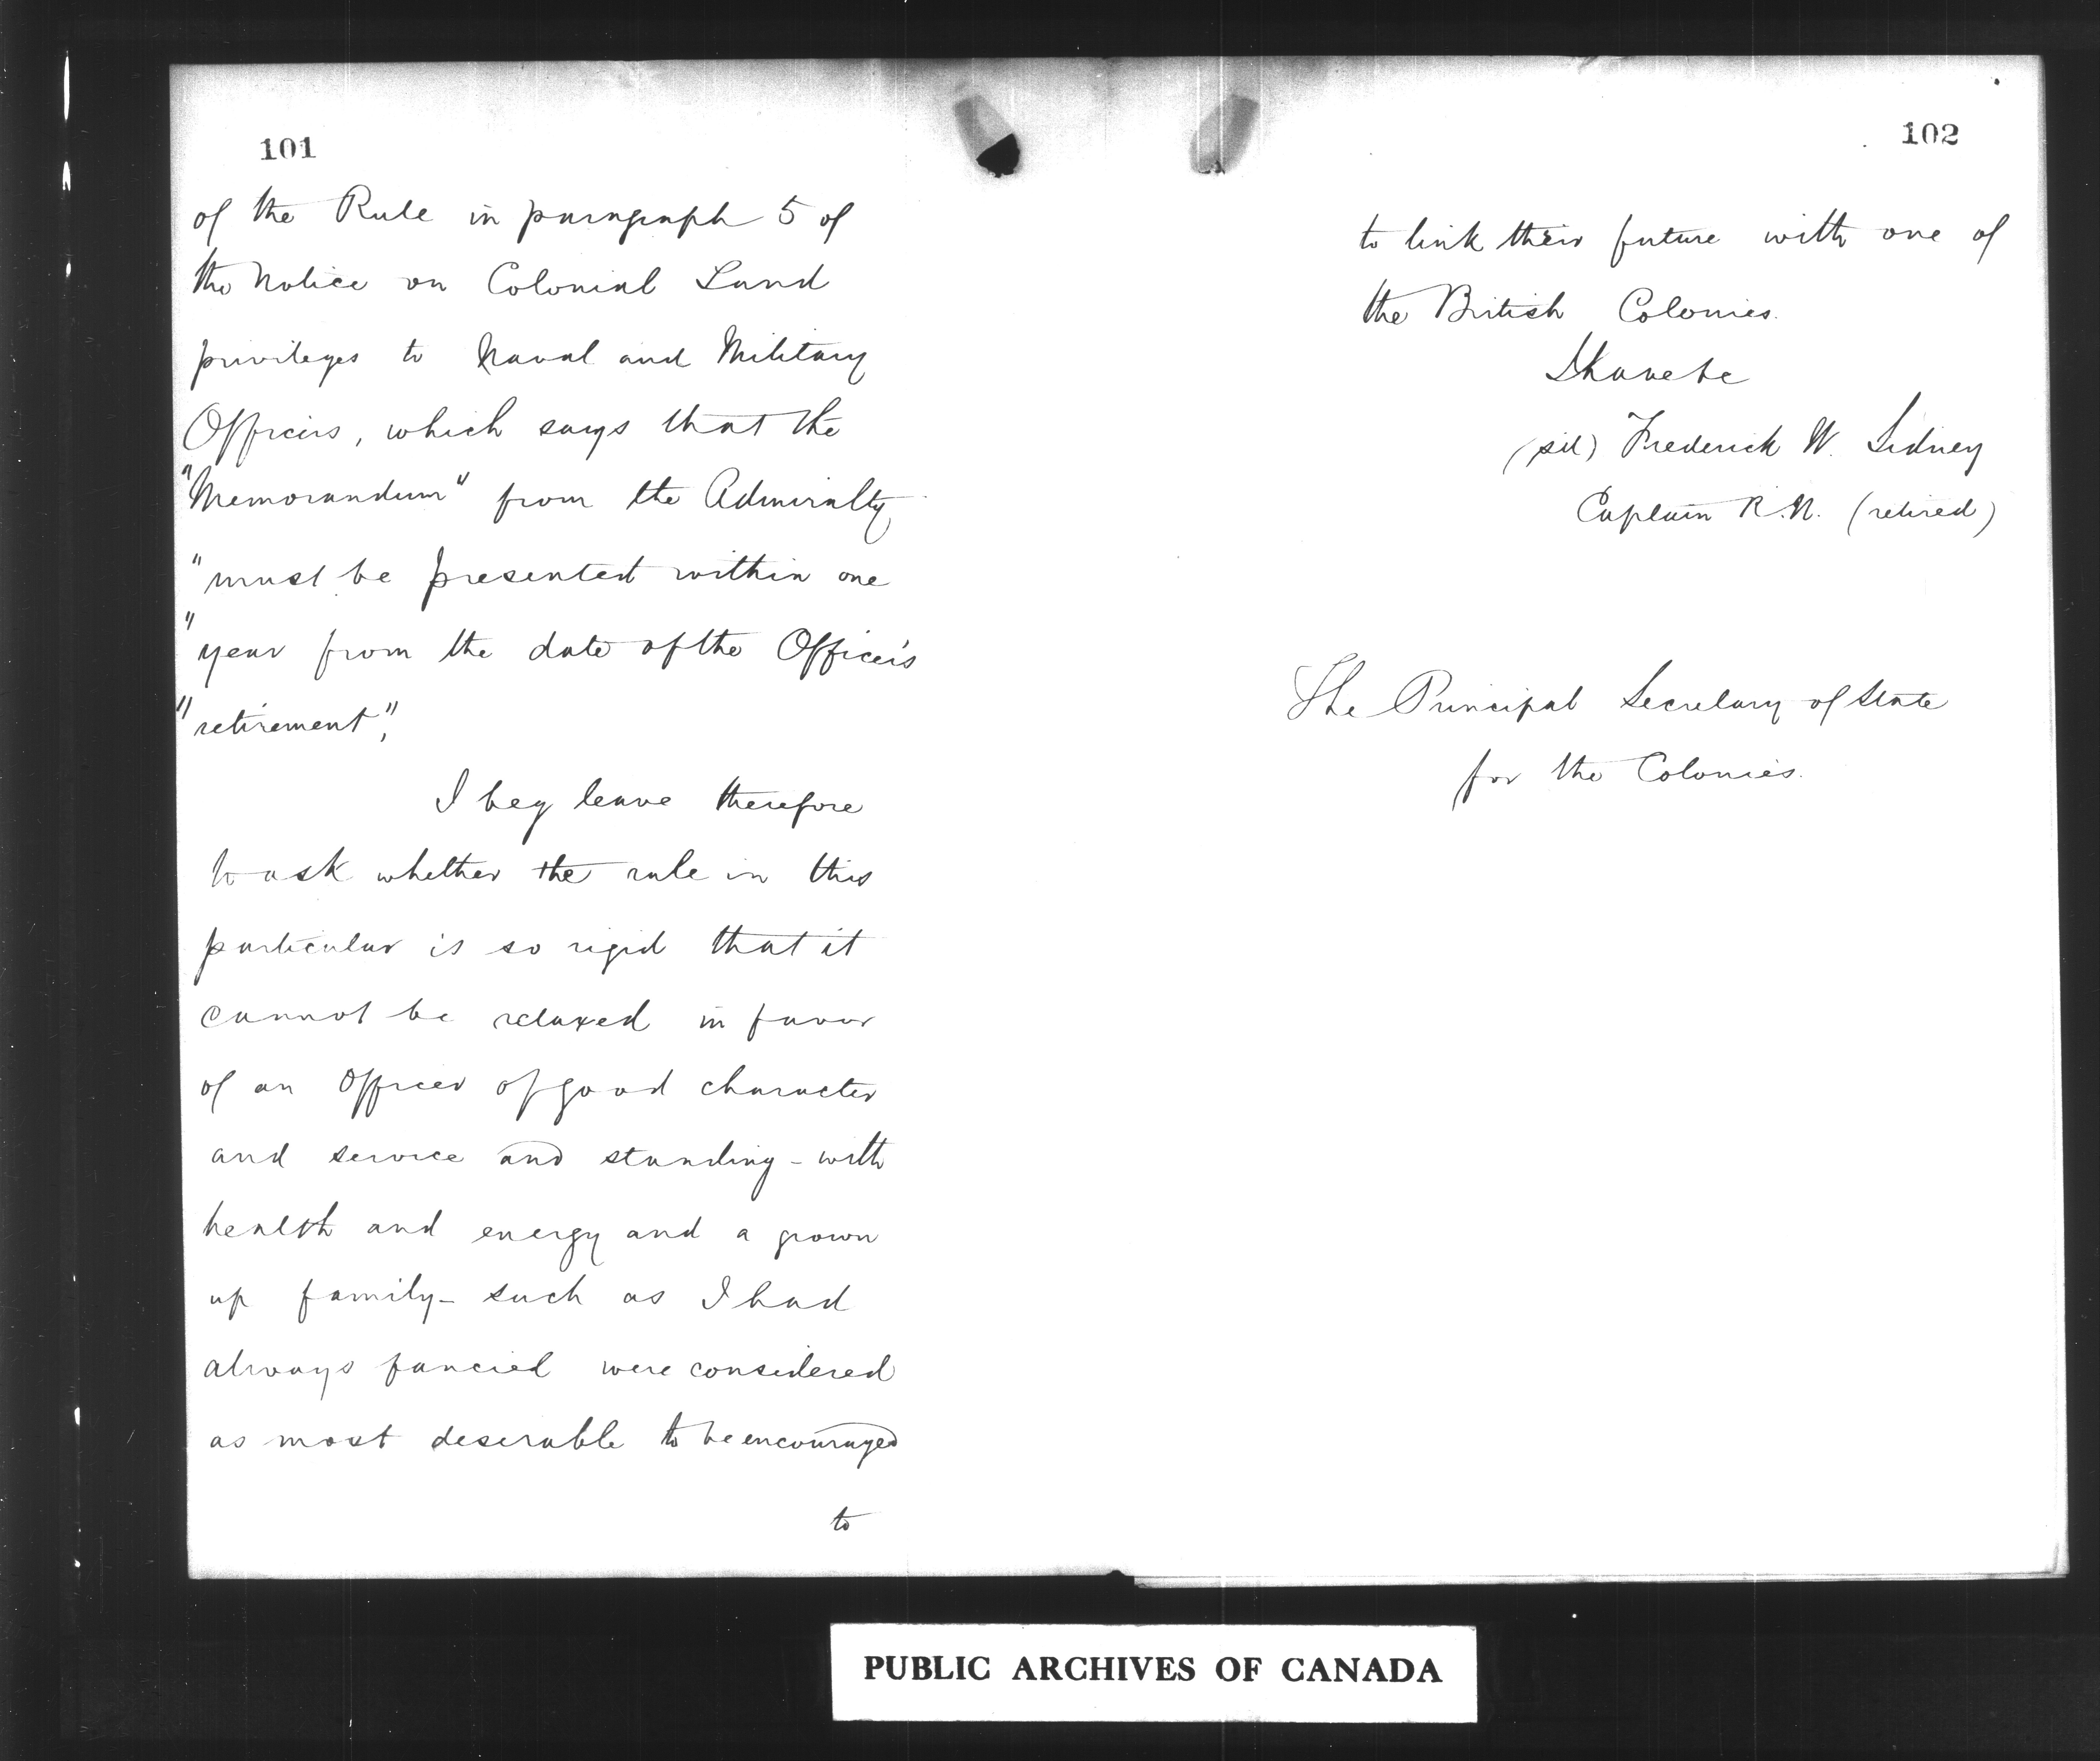 101
of the Rule in paragraph 5 of
the Notice on Colonial Land
privileges to Naval and Military
Officers, which says that the
"Memorandum" from the Admiralty
"must be presented within one
"year from the date of the Officer's
"retirement",
I beg leave therefore
to ask whether the rule in this
particular is so rigid that it
cannot be relaxed in favor
of an Officer of good character
and service and standing - with
health and energy and a grown
up family - such as I had
always fancied were considered
as most deserable to be encouraged
to
102
to link their future with one of
the British Colonies.
I have &c
(sd) Frederick W. Sidney
Captain R.N. (retired)
The Principal Secretary of State
for the Colonies.
PUBLIC ARCHIVES OF CANADA